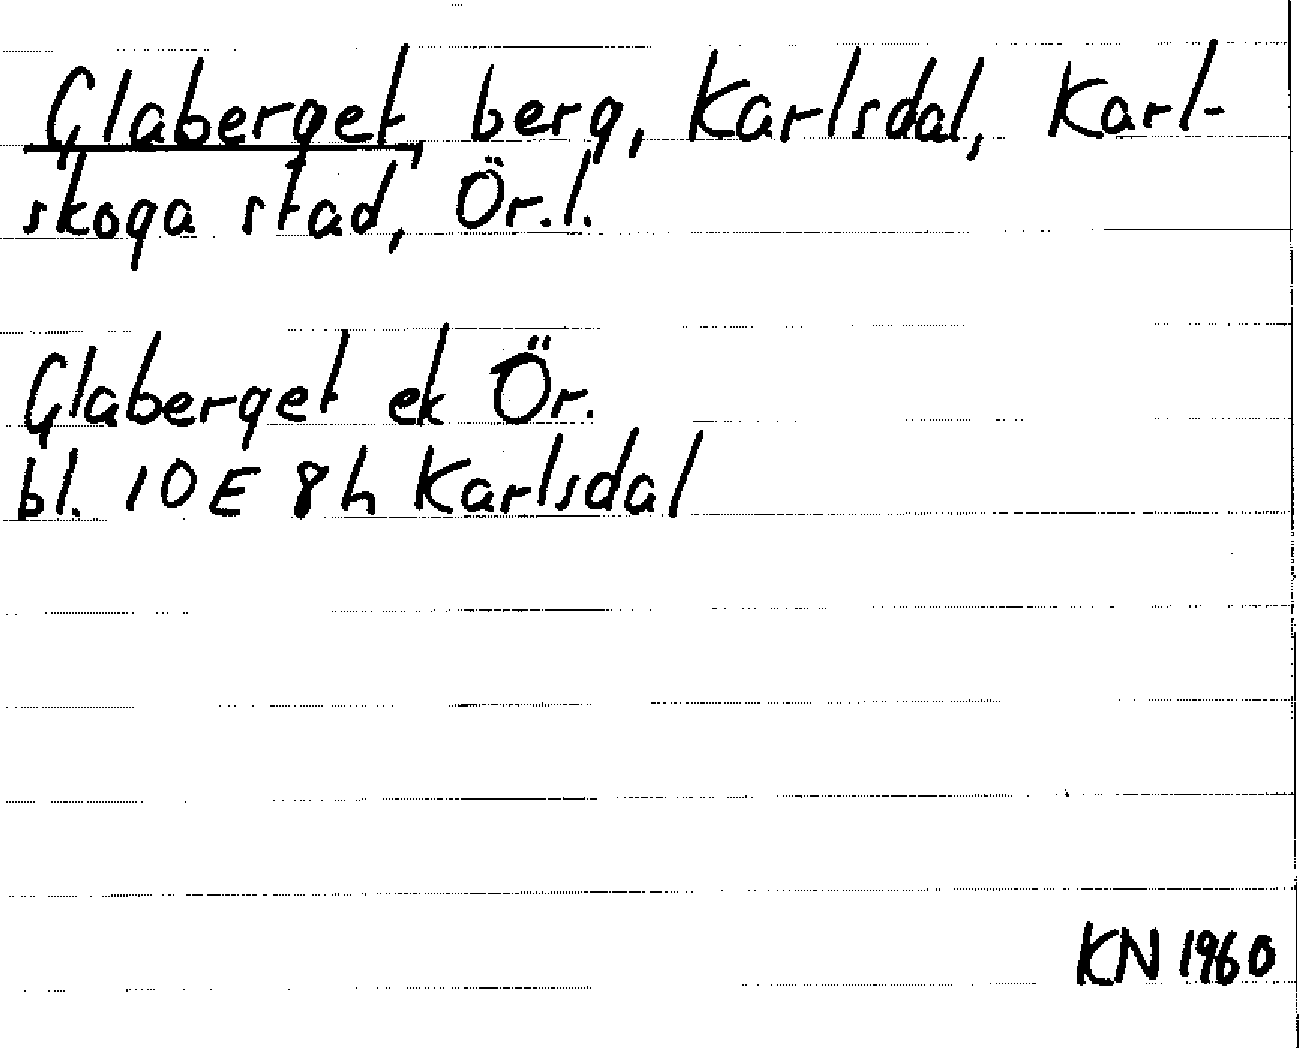 Glaberget, berg, Karlsdal, Karl-
skoga stad, Ör.l.
Glaberget ek Ör.
bl. 10E 8h Karlsdal
KN 1960